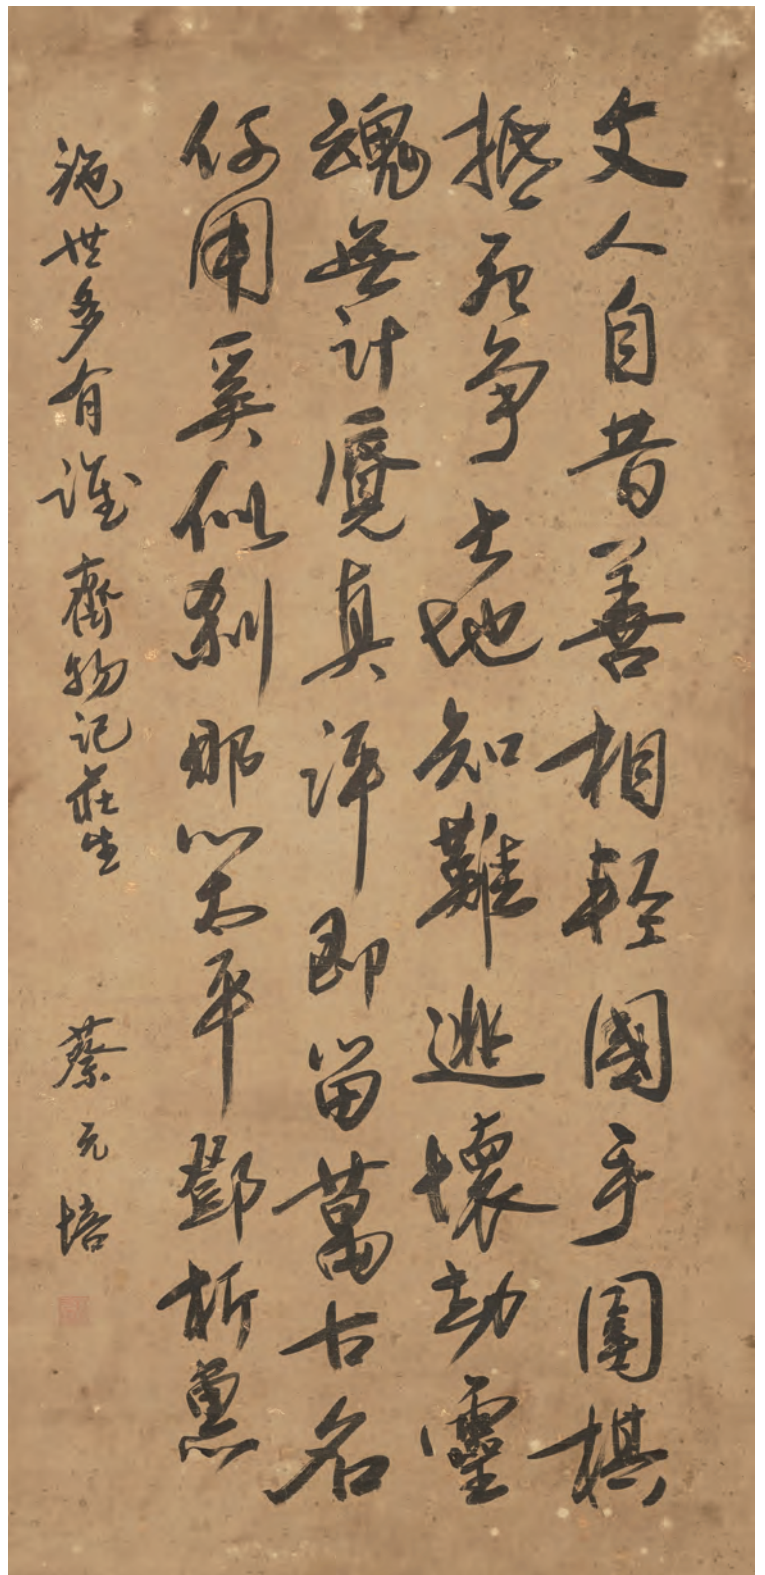 文人自昔善相輕國手圍棋
抵死爭大地知難逃壞劫靈
魂無計覓真評即留萬古名
何用奚似剎那心太平鄧析惠
施世多有誰齊物記莊生
蔡元培